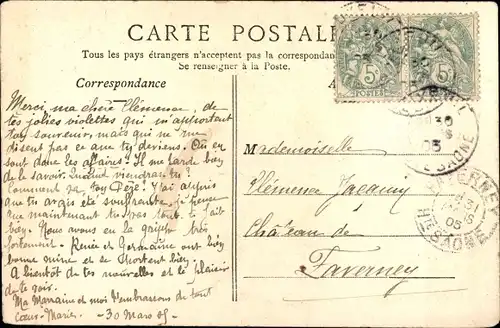 CARTE POSTALE
Tous les pays étrangers n'acceptent pas la correspondan
Se renseigner à la Poste.
Correspondance
Merci, ma chère Clémence, de
tes jolies violettes qui m'apportent
ton souvenir, mais qui ne me
disent pas ce que tu deviens. Où en
sont donc les affaires. Il me tarde
de le savoir. Quand viendras tu?
Comment va ton Père? J'ai appris
que tu avais été souffrante, je pense
que maintenant tu vas tout à fait
bien. Nous avons eu la grippe très
fortement. Renée et Germaine ont
bonne mine et se portent
A bientôt de tes nouvelles et le plaisir
de te voir.
Ma Marraine et moi t'embrassons de tout
cœur. Marie. - 30 Mars 05 -
Mademoiselle
Clémence Jacquiny
Château de
Faverney
5
5
30
05
SAONE
FAVERNEY
05
HTE SAONE